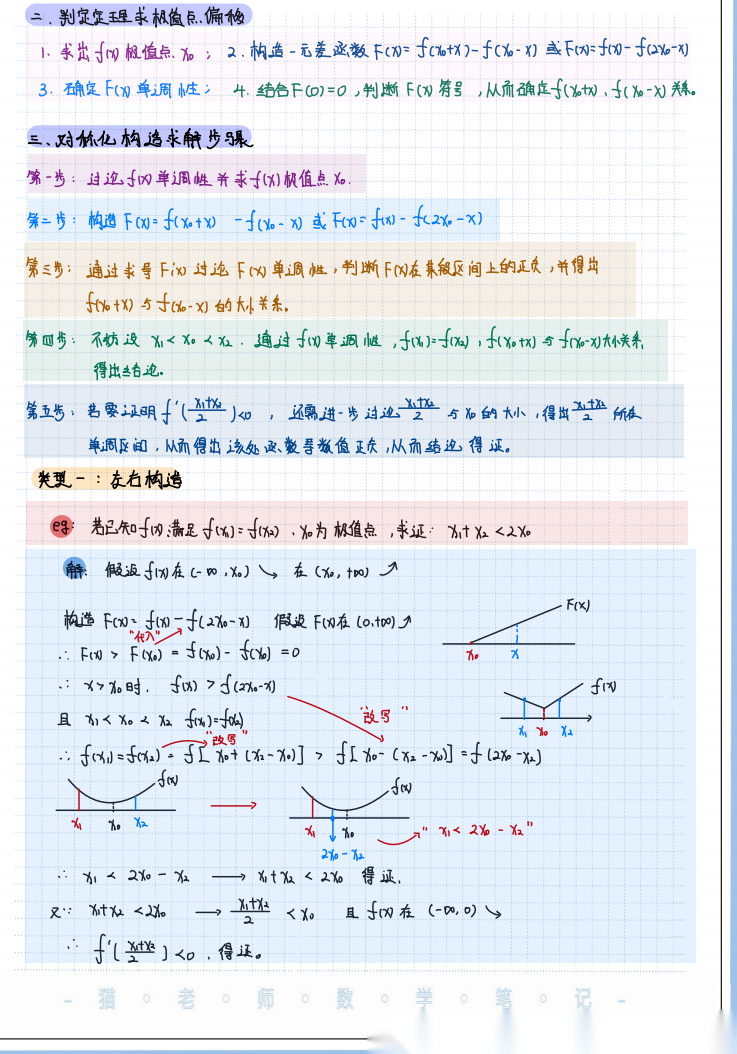 二、判定定理求极值点偏移
1. 求出f(x)极值点x₀； 2. 构造一元差函数F(x)= f(x₀+x)-f(x₀-x) 或F(x)=f(x)- f(2x₀-x)
3. 确定F(x)单调性； 4. 结合F(0)=0，判断F(x)符号，从而确定f(x₀+x)、f(x₀-x)关系。
三、对称化构造求解步骤
第一步：讨论f(x)单调性并求f(x)极值点x₀.
第二步：构造F(x)= f(x₀+x) -f(x₀-x) 或F(x)= f(x)- f(2x₀-x)
第三步：通过求导F'(x)讨论F(x)单调性，判断F(x)在某段区间上的正负，并得出
f(x₀+x)与f(x₀-x)的大小关系。
第四步：不妨设 x₁< x₀ < x₂. 通过f(x)单调性，f(x₁)=f(x₂)，f(x₀+x)与f(x₀-x)大小关系,
得出结论。
第五步：若要证明f'((x₁+x₂)/2)<0 ， 还需进一步讨论(x₁+x₂)/2与x₀的大小，得出(x₁+x₂)/2所在
单调区间，从而得出该处函数导数值正负，从而结论得证。
类型一：左右构造
eg: 若已知f(x)满足f(x₁)=f(x₂)、x₀为极值点，求证：x₁+x₂<2x₀
解：假设f(x)在(-∞,x₀)↘ 在(x₀,+∞)↗
构造F(x)= f(x)-f(2x₀-x) 假设F(x)在(0,+∞)↗
F(x)
"代入"
∴ F(x) > F(x₀) = f(x₀)- f(x₀) =0
x₀ x
∴ x>x₀时, f(x) > f(2x₀-x)
f(x)
且 x₁< x₀ < x₂ f(x₁)=f(x₂)
"改写"
x₁ x₀ x₂
"改写"
∴ f(x₁)=f(x₂) = f[x₀+(x₂-x₀)] > f[x₀-(x₂-x₀)] =f(2x₀-x₂)
f(x) f(x)
x₁ x₀ x₂ x₁ x₀ "x₁< 2x₀-x₂"
2x₀-x₂
∴ x₁ < 2x₀-x₂ → x₁+x₂ < 2x₀ 得证.
又∵ x₁+x₂<2x₀ → (x₁+x₂)/2 < x₀ 且f(x)在 (-∞,0)↘
∴ f'((x₁+x₂)/2)<0 .得证。
- 猫。老。师。数。学。笔。记 -